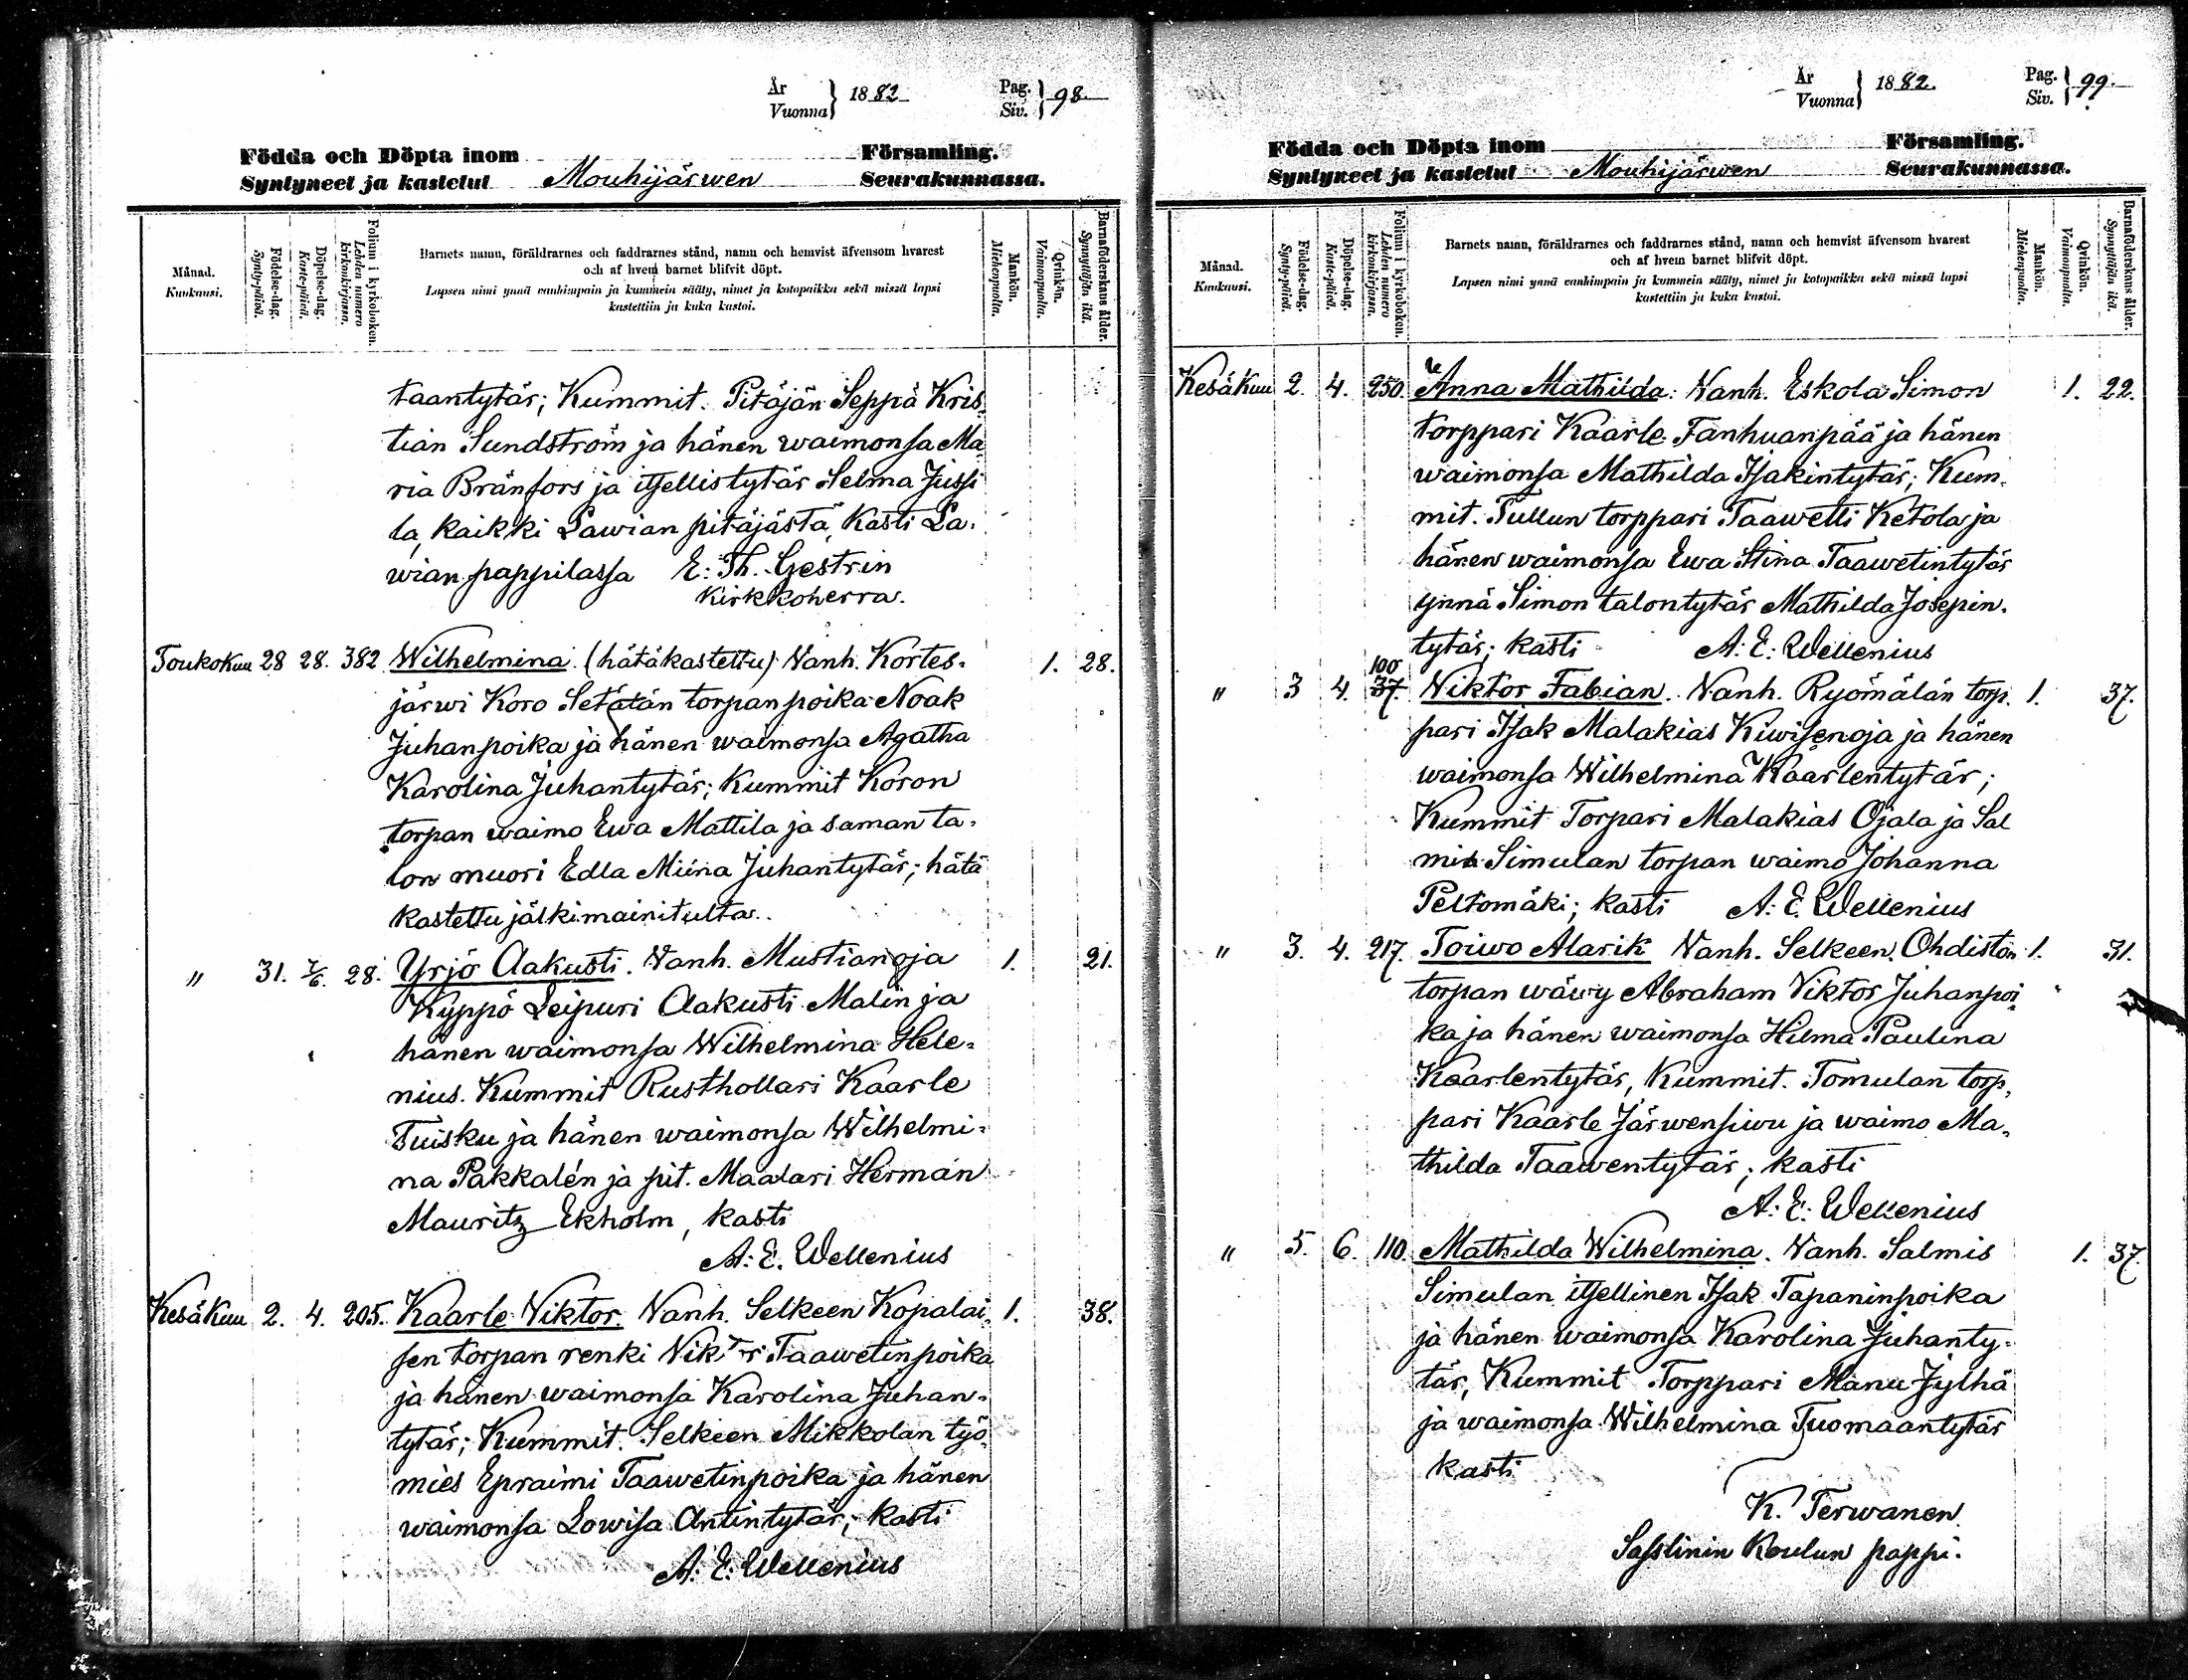 År
Vuonna } 1882
Pag.
Siv. } 98.
Födda och Döpta inom Församling.
Syntyneet ja kastetut Mouhijärwen Seurakunnassa.
Månad.
Kuukausi.
Födelse-dag.
Synty-päivä.
Döpelse-dag.
Kaste-päivä.
Folium i kyrkoboken.
Lehden numero
kirkonkirjassa.
Barnets namn, föräldrarnes och faddrarnes stånd, namn och hemvist äfvensom hvarest
och af hvem barnet blifvit döpt.
Lapsen nimi ynnä vanhimpain ja kummein sääty, nimet ja kotopaikka sekä missä lapsi
kastettiin ja kuka kastoi.
Mankön.
Miehenpuolta.
Qvinkön.
Vaimonpuolta.
Barnaföderskans ålder.
Synnyttäjän ikä.
taantytär; Kummit. Pitäjän Seppä Kris-
tian Sundström ja hänen waimonsa Ma
ria Bränfors ja itsellistytär Selma Jussi
la, kaikki Lawian pitäjästä, Kasti La-
wian pappilassa E: Th. Gestrin
Kirkkoherra.
Toukokuu 28 28. 382 Wilhelmina. (hätäkastettu) Vanh. Kortes- 1. 28.
järwi Koro Setätän torpan poika Noak
Juhanpoika ja hänen waimonsa Agatha
Karolina Juhantytär; Kummit Koron
torpan waimo Ewa Mattila ja saman ta-
lon muori Edla Miina Juhantytär; hätä
kastettu jälkimainitulta.
" 31. 7/6. 28. Yrjö Aakusti. Vanh. Mustianoja 1. 21.
Kyppö Leipuri Aakusti Malin ja
hänen waimonsa Wilhelmina Hele-
nius. Kummit Rusthollari Kaarle
Tuisku ja hänen waimonsa Wilhelmi-
na Pakkalén ja pit. Maalari Herman
Mauritz Ekholm, kasti
A: E. Wellenius
Kesäkuu 2. 4. 205. Kaarle Viktor. Vanh. Selkeen Kopalai- 1. 38.
sen torpan renki Viktor Taawetinpoika
ja hänen waimonsa Karolina Juhan-
tytär; Kummit. Selkeen Mikkolan työ-
mies Epraimi Taawetinpoika ja hänen
waimonsa Lowisa Antintytär; kasti
A: E: Wellenius
År
Vuonna } 1882.
Pag.
Siv. } 99.
Födda och Döpta inom Församling.
Syntyneet ja kastetut Mouhijärwen Seurakunnassa.
Månad.
Kuukausi.
Födelse-dag.
Synty-päivä.
Döpelse-dag.
Kaste-päivä.
Folium i kyrkoboken.
Lehden numero
kirkonkirjassa.
Barnets namn, föräldrarnes och faddrarnes stånd, namn och hemvist äfvensom hvarest
och af hvem barnet blifvit döpt.
Lapsen nimi ynnä vanhimpain ja kummein sääty, nimet ja kotopaikka sekä missä lapsi
kastettiin ja kuka kastoi.
Mankön.
Miehenpuolta.
Qvinkön.
Vaimonpuolta.
Barnaföderskans ålder.
Synnyttäjän ikä.
Kesäkuu 2. 4. 250. Anna Mathilda: Vanh. Eskola Simon 1. 22.
torppari Kaarle Tanhuanpää ja hänen
waimonsa Mathilda Isakintytär; Kum-
mit. Tullun torppari Taawetti Ketola ja
hänen waimonsa Ewa Stina Taawetintytär
ynnä Simon talontytär Mathilda Josepin-
tytär; kasti A: E: Wellenius
100
" 3 4. 37. Viktor Fabian. Vanh. Ryömälän torp- 1. 37.
pari Isak Malakias Kiwisenoja ja hänen
waimonsa Wilhelmina Kaarlentytär;
Kummit Torpari Malakias Ojala ja Sal
mis Simulan torpan waimo Johanna
Peltomäki; kasti A: E. Wellenius
" 3. 4. 217. Toiwo Alarik Vanh. Selkeen Ohdistön 1. 31.
torpan wäwy Abraham Viktor Juhanpoi-
ka ja hänen waimonsa Hilma Paulina
Kaarlentytär, Kummit. Tomulan torp-
pari Kaarle Järwensiwu ja waimo Ma-
thilda Taawentytär; kasti
A: E: Wellenius
" 5. 6. 110. Mathilda Wilhelmina. Vanh. Salmis 1. 37.
Simulan itsellinen Isak Tapaninpoika
ja hänen waimonsa Karolina Juhanty-
tär, Kummit Torppari Manu Jylhä
ja waimonsa Wilhelmina Tuomaantytär
kasti
K. Terwanen
Sasslinin Koulun pappi.